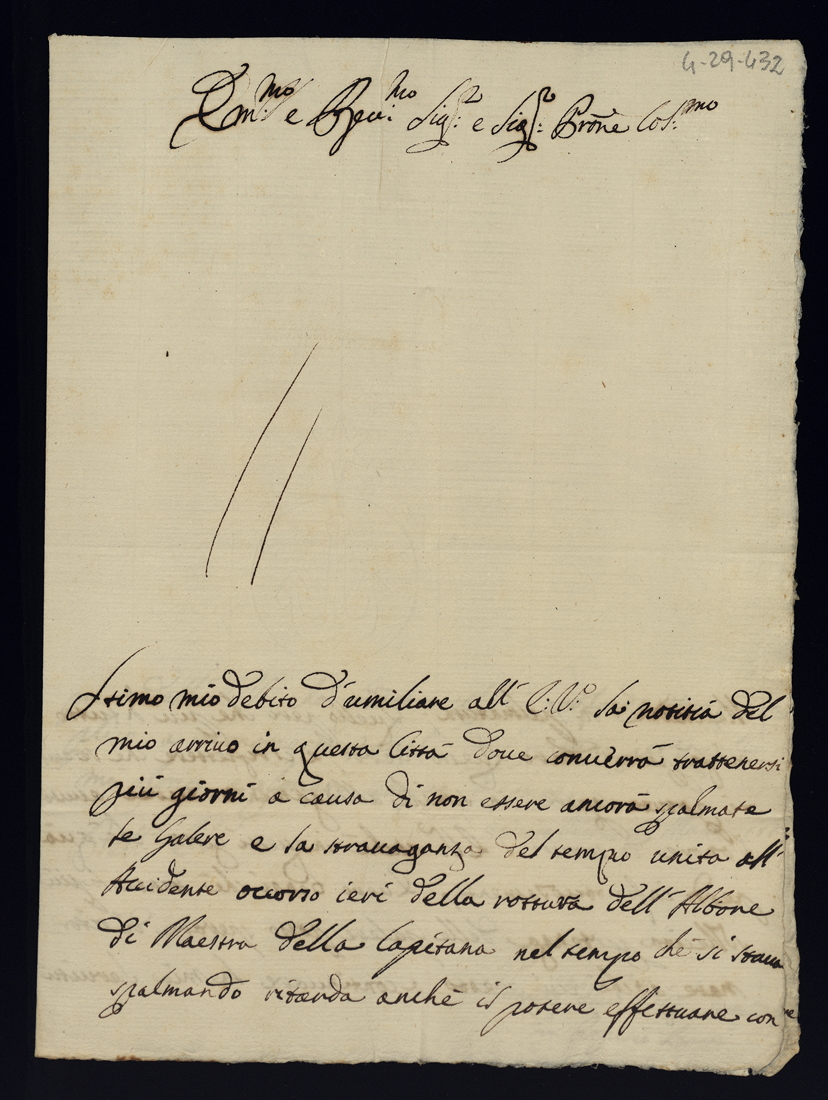 4-29-432
Em:mo e Rev:mo Sig:r e Sig:r Prōne Col:mo
Stimo mio debito d'umiliare all' E:V: la notitia del
mio arrivo in questa Città dove converrà trattenersi
più giorni a causa di non essere ancora spalmate
le Galere e la stravaganza del tempo unita all'
Accidente occorso ieri della rottura dell' Albore
di Maestra della Capitana nel tempo che si stava
spalmando ritarda anche il potere effettuare con